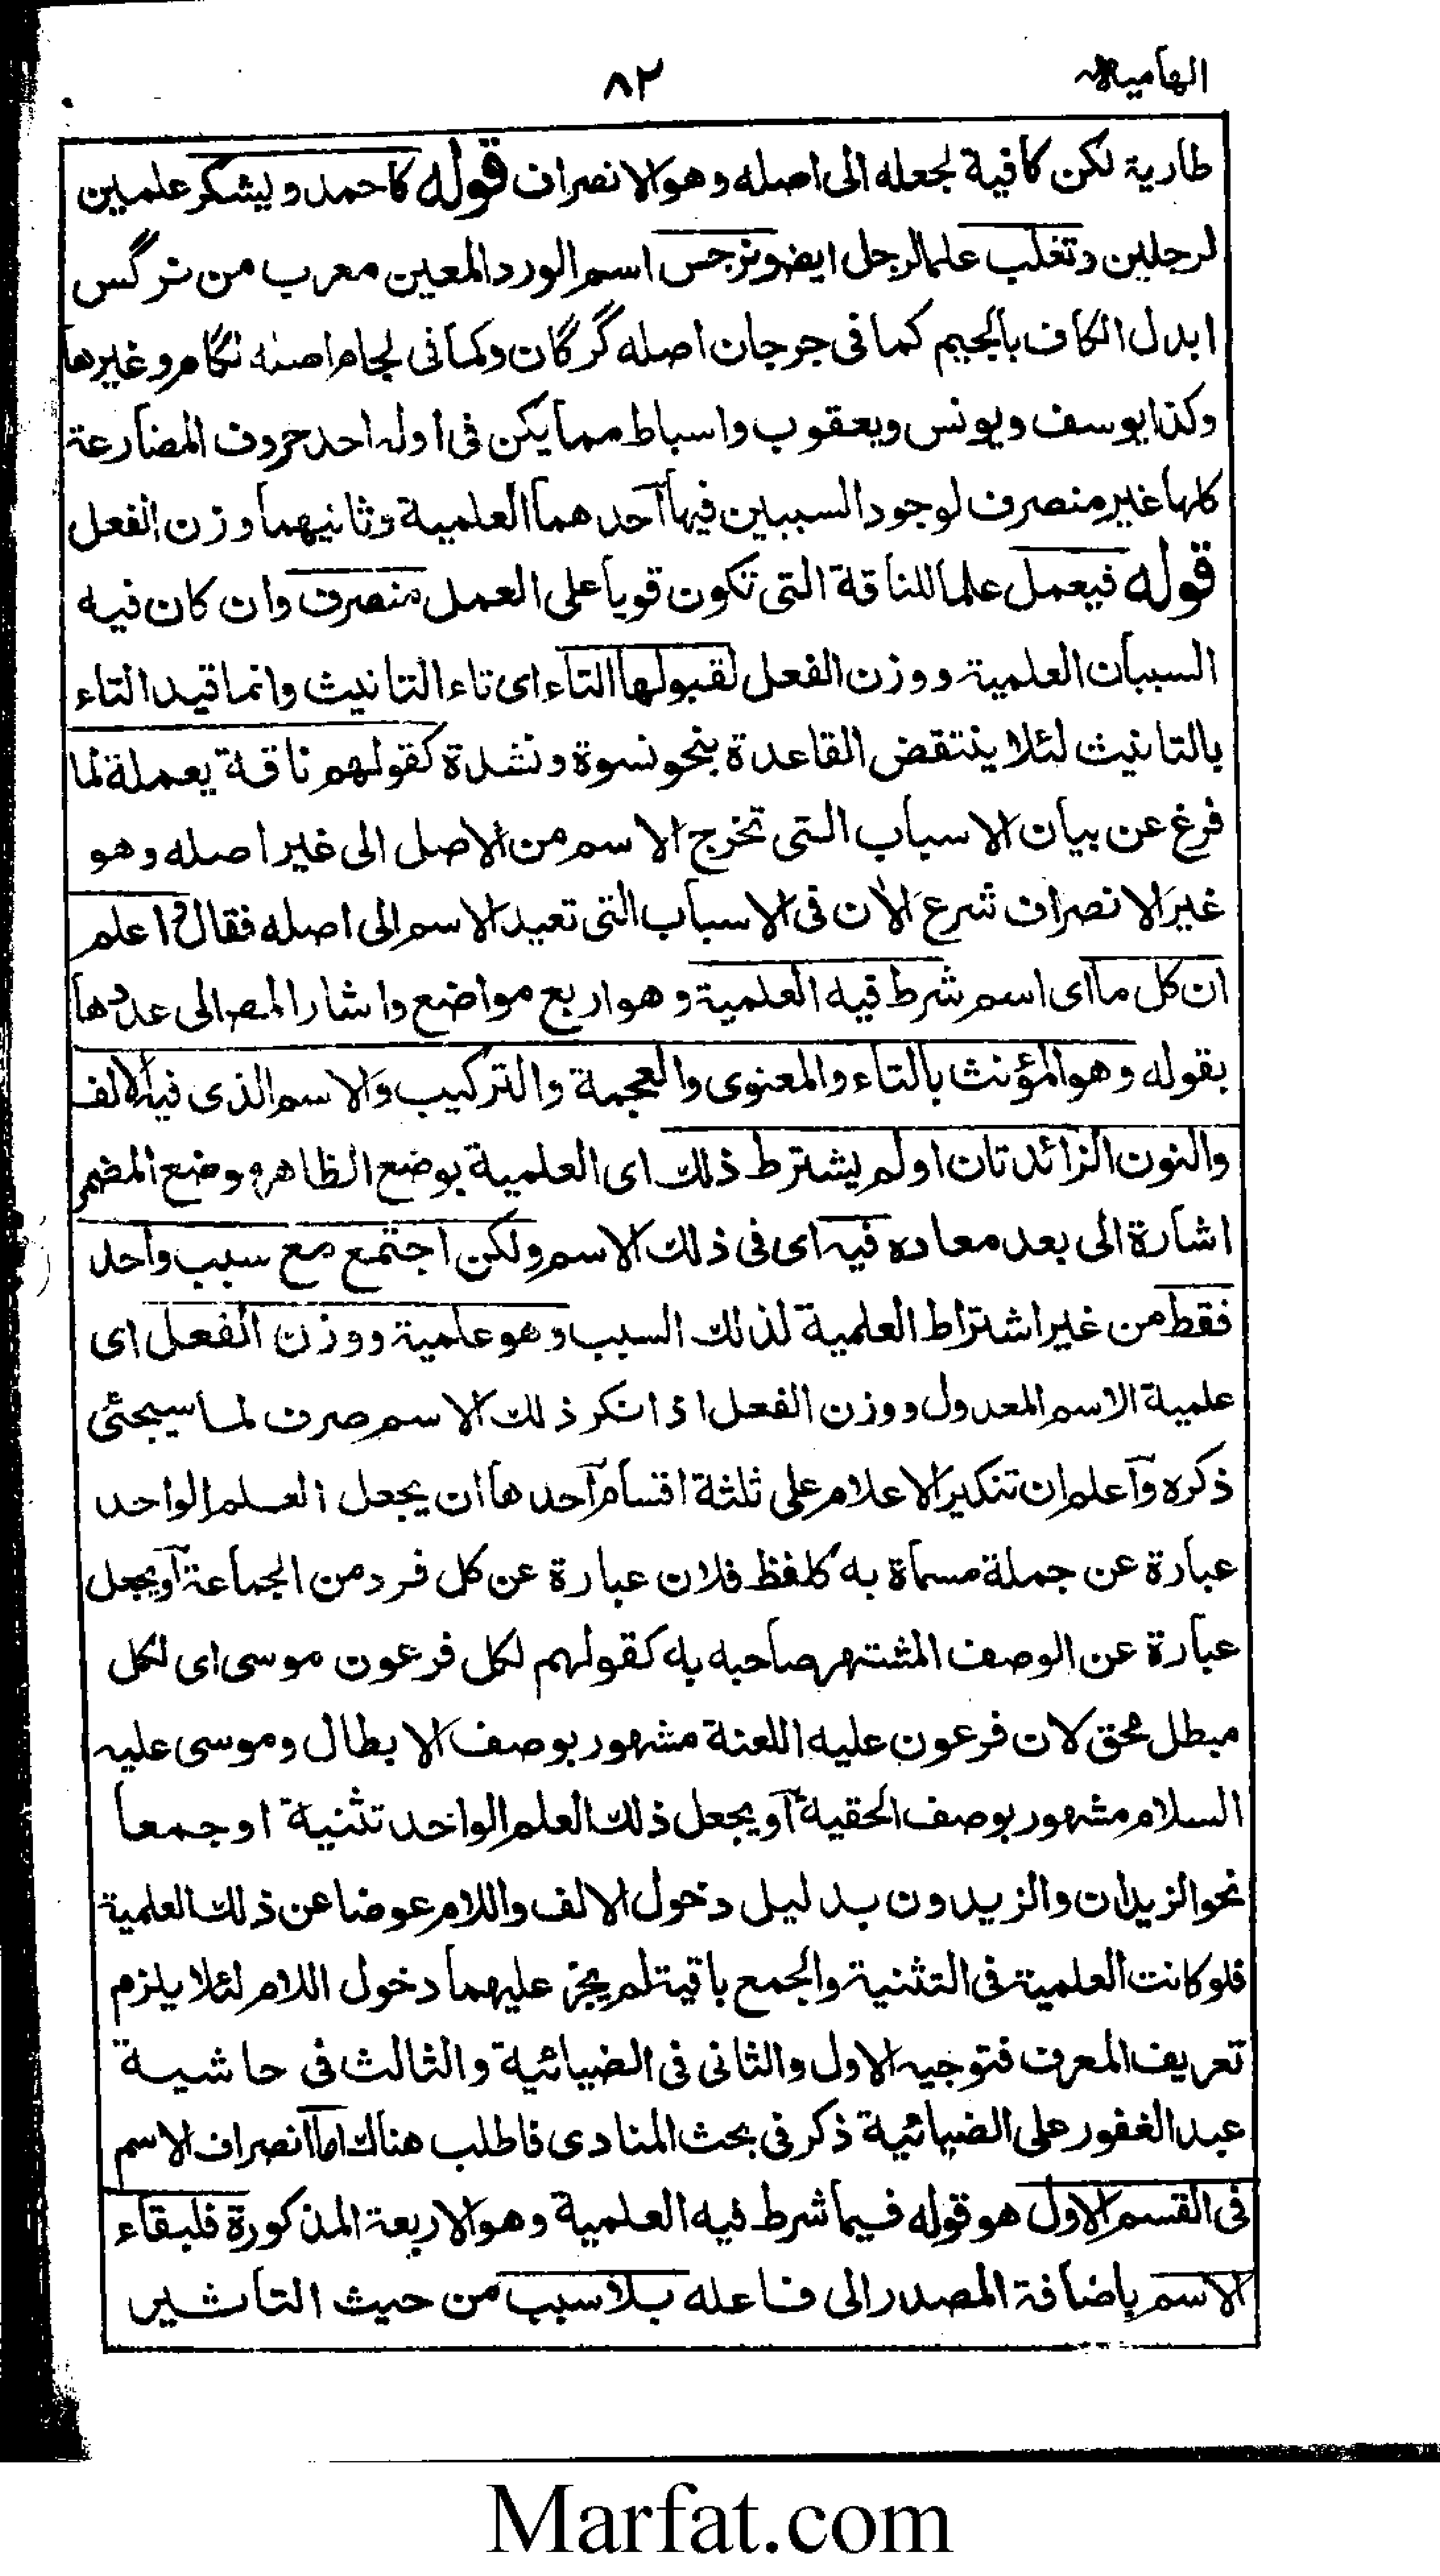 الهامیہ
۸۲
طارية لكن كافية لجعله الى اصله وهو الانصراف قوله كاحمد ويشكر علمين
لرجلين وتغلب علما لرجل ايضا ونرجس اسم الورد المعين معرب من نرگس
ابدل الكاف بالجيم كما فى جرجان اصله گرگان وكما فى لجام اصله لگام وغيرها
وكذا يوسف ويونس ويعقوب واسباط مما يكن فى اوله احد حروف المضارعة
كلها غير منصرف لوجود السببين فيها آحدهما العلمية وثانيهما وزن الفعل
قوله فيعمل علما للناقة التى تكون قويا على العمل منصرف وان كان فيه
السببان العلمية ووزن الفعل لقبولها التاء اى تاء التانيث وانما قيد التاء
بالتانيث لئلا ينتقض القاعدة بنحو نسوة ونشدة كقولهم ناقة يعملة لما
فرغ عن بيان الاسباب التى تخرج الاسم من الاصل الى غير اصله وهو
غير الانصراف شرع الأن فى الاسباب التى تعيد الاسم الى اصله فقال و اعلم
ان كل ما اى اسم شرط فيه العلمية وهو اربع مواضع واشار المص الى عددها
بقوله وهو المؤنث بالتاء والمعنوى والعجمة والتركيب والاسم الذى فيه الالف
والنون الزائدتان اولم يشترط ذلك اى العلمية بوضع الظاهر موضع المضمر
اشارة الى بعد معاده فيه اى فى ذلك الاسم ولكن اجتمع مع سبب واحد
فقط من غير اشتراط العلمية لذلك السبب وهو علمية ووزن الفعل اى
علمية الاسم المعدول ووزن الفعل اذا نكر ذلك الاسم صرف لما سيجئى
ذكره وآعلم ان تنكير الاعلام على ثلثة اقسام آحدها ان يجعل العلم الواحد
عبارة عن جملة مسماة به كلفظ فلان عبارة عن كل فرد من الجماعة آو يجعل
عبارة عن الوصف المشتهر صاحبه به كقولهم لكل فرعون موسى اى لكل
مبطل محق لان فرعون عليه اللعنة مشهور بوصف الابطال وموسى عليه
السلام مشهور بوصف الحقية آو يجعل ذلك العلم الواحد تثنية او جمعا
نحو الزيدان والزيدون بدليل دخول الالف واللام عوضا عن ذلك العلمية
فلو كانت العلمية فى التثنية والجمع باقية لم يجز عليهما دخول اللام لئلا يلزم
تعريف المعرف فتوجيه الاول والثانى فى الضيائية والثالث فى حاشية
عبد الغفور على الضيائية ذكر فى بحث المنادى فاطلب هناك اما انصراف الاسم
فى القسم الاول هو قوله فيما شرط فيه العلمية وهو الاربعة المذكورة فلبقاء
الاسم باضافة المصدر الى فاعله بلا سبب من حيث التاثير
Marfat.com